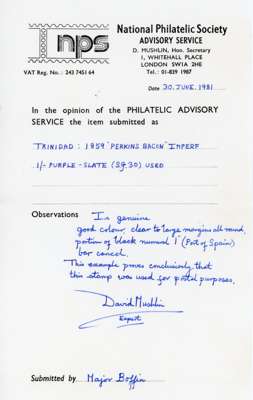 nps
National Philatelic Society
ADVISORY SERVICE
D. MUSHLIN, Hon. Secretary
1, WHITEHALL PLACE
LONDON SW1A 2HE
Tel.: 01-839 1987
VAT Reg. No.: 243 7451 64
Date 30. JUNE. 1981
In the opinion of the PHILATELIC ADVISORY
SERVICE the item submitted as
TRINIDAD: 1859 "PERKINS BACON" IMPERF
1/- PURPLE-SLATE (SG.30) USED
Observations Is genuine
good colour, clear to large margins all round,
portion of black numeral '1' (Port of Spain)
bar cancel.
This example proves conclusively that
this stamp was used for postal purposes.
David Mushlin
Expert
Submitted by Major Boffin